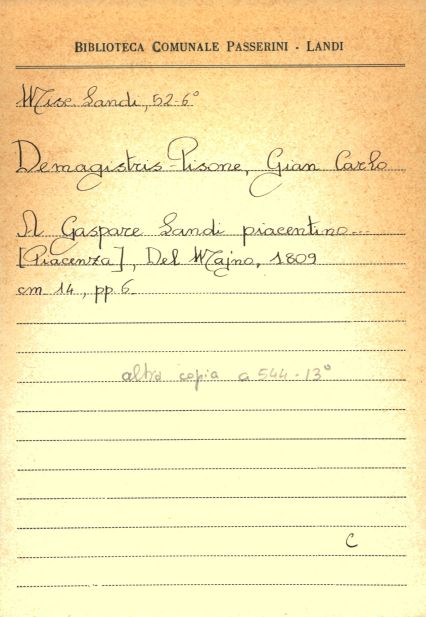 BIBLIOTECA COMUNALE PASSERINI - LANDI
Misc. Landi, 52-6°
Demagistris-Pisone, Gian Carlo
A Gaspare Landi piacentino...
[Piacenza], Del Majno, 1809
cm 14, pp 6.
altra copia a 544-13°
C